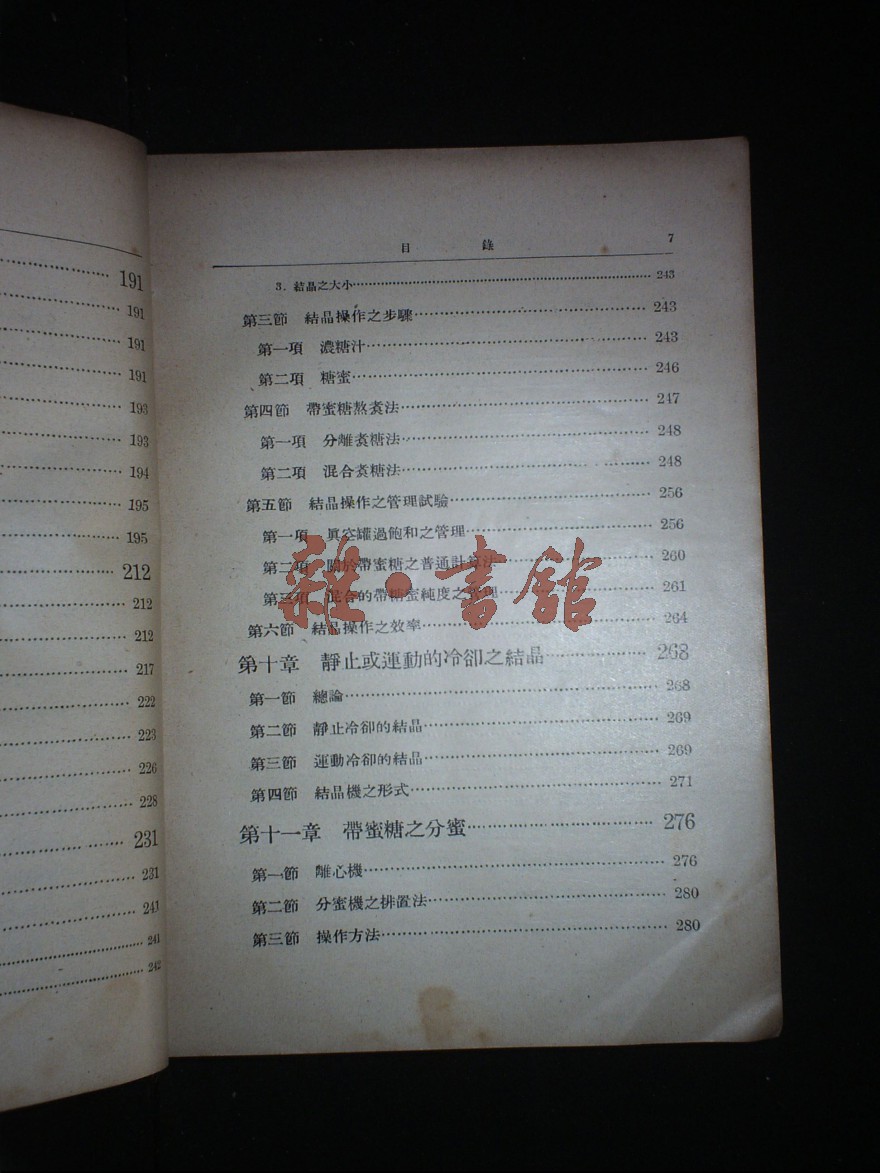 191
191
191
191
193
193
194
195
195
212
212
212
217
222
223
226
228
231
231
241
241
242
目 錄 7
3. 結晶之大小 243
第三節 結晶操作之步驟 243
第一項 濃糖汁 243
第二項 糖蜜 246
第四節 帶蜜糖熬煮法 247
第一項 分離煮糖法 248
第二項 混合煮糖法 248
第五節 結晶操作之管理試驗 256
第一項 眞空罐過飽和之管理 256
第二項 關於帶蜜糖之普通計算法 260
第三項 混合的帶糖蜜純度之管理 261
第六節 結晶操作之效率 264
第十章 靜止或運動的冷卻之結晶 268
第一節 總論 268
第二節 靜止冷卻的結晶 269
第三節 運動冷卻的結晶 269
第四節 結晶機之形式 271
第十一章 帶蜜糖之分蜜 276
第一節 離心機 276
第二節 分蜜機之排置法 280
第三節 操作方法 280
雜·書館